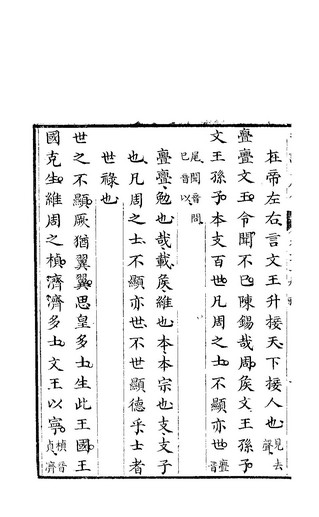 在帝左右言文王升接天下接人也見去聲
亹亹文王令聞不已陳錫哉周矦文王孫子
文王孫子本支百世凡周之士不顯亦世亹音
尾聞音問已音以
亹亹勉也哉載矦維也本本宗也支支子
也凡周之士不顯亦世不世顯德乎士者
世祿也
世之不顯厥猶翼翼思皇多士生此王國王
國克生維周之楨濟濟多士文王以寧楨音貞濟